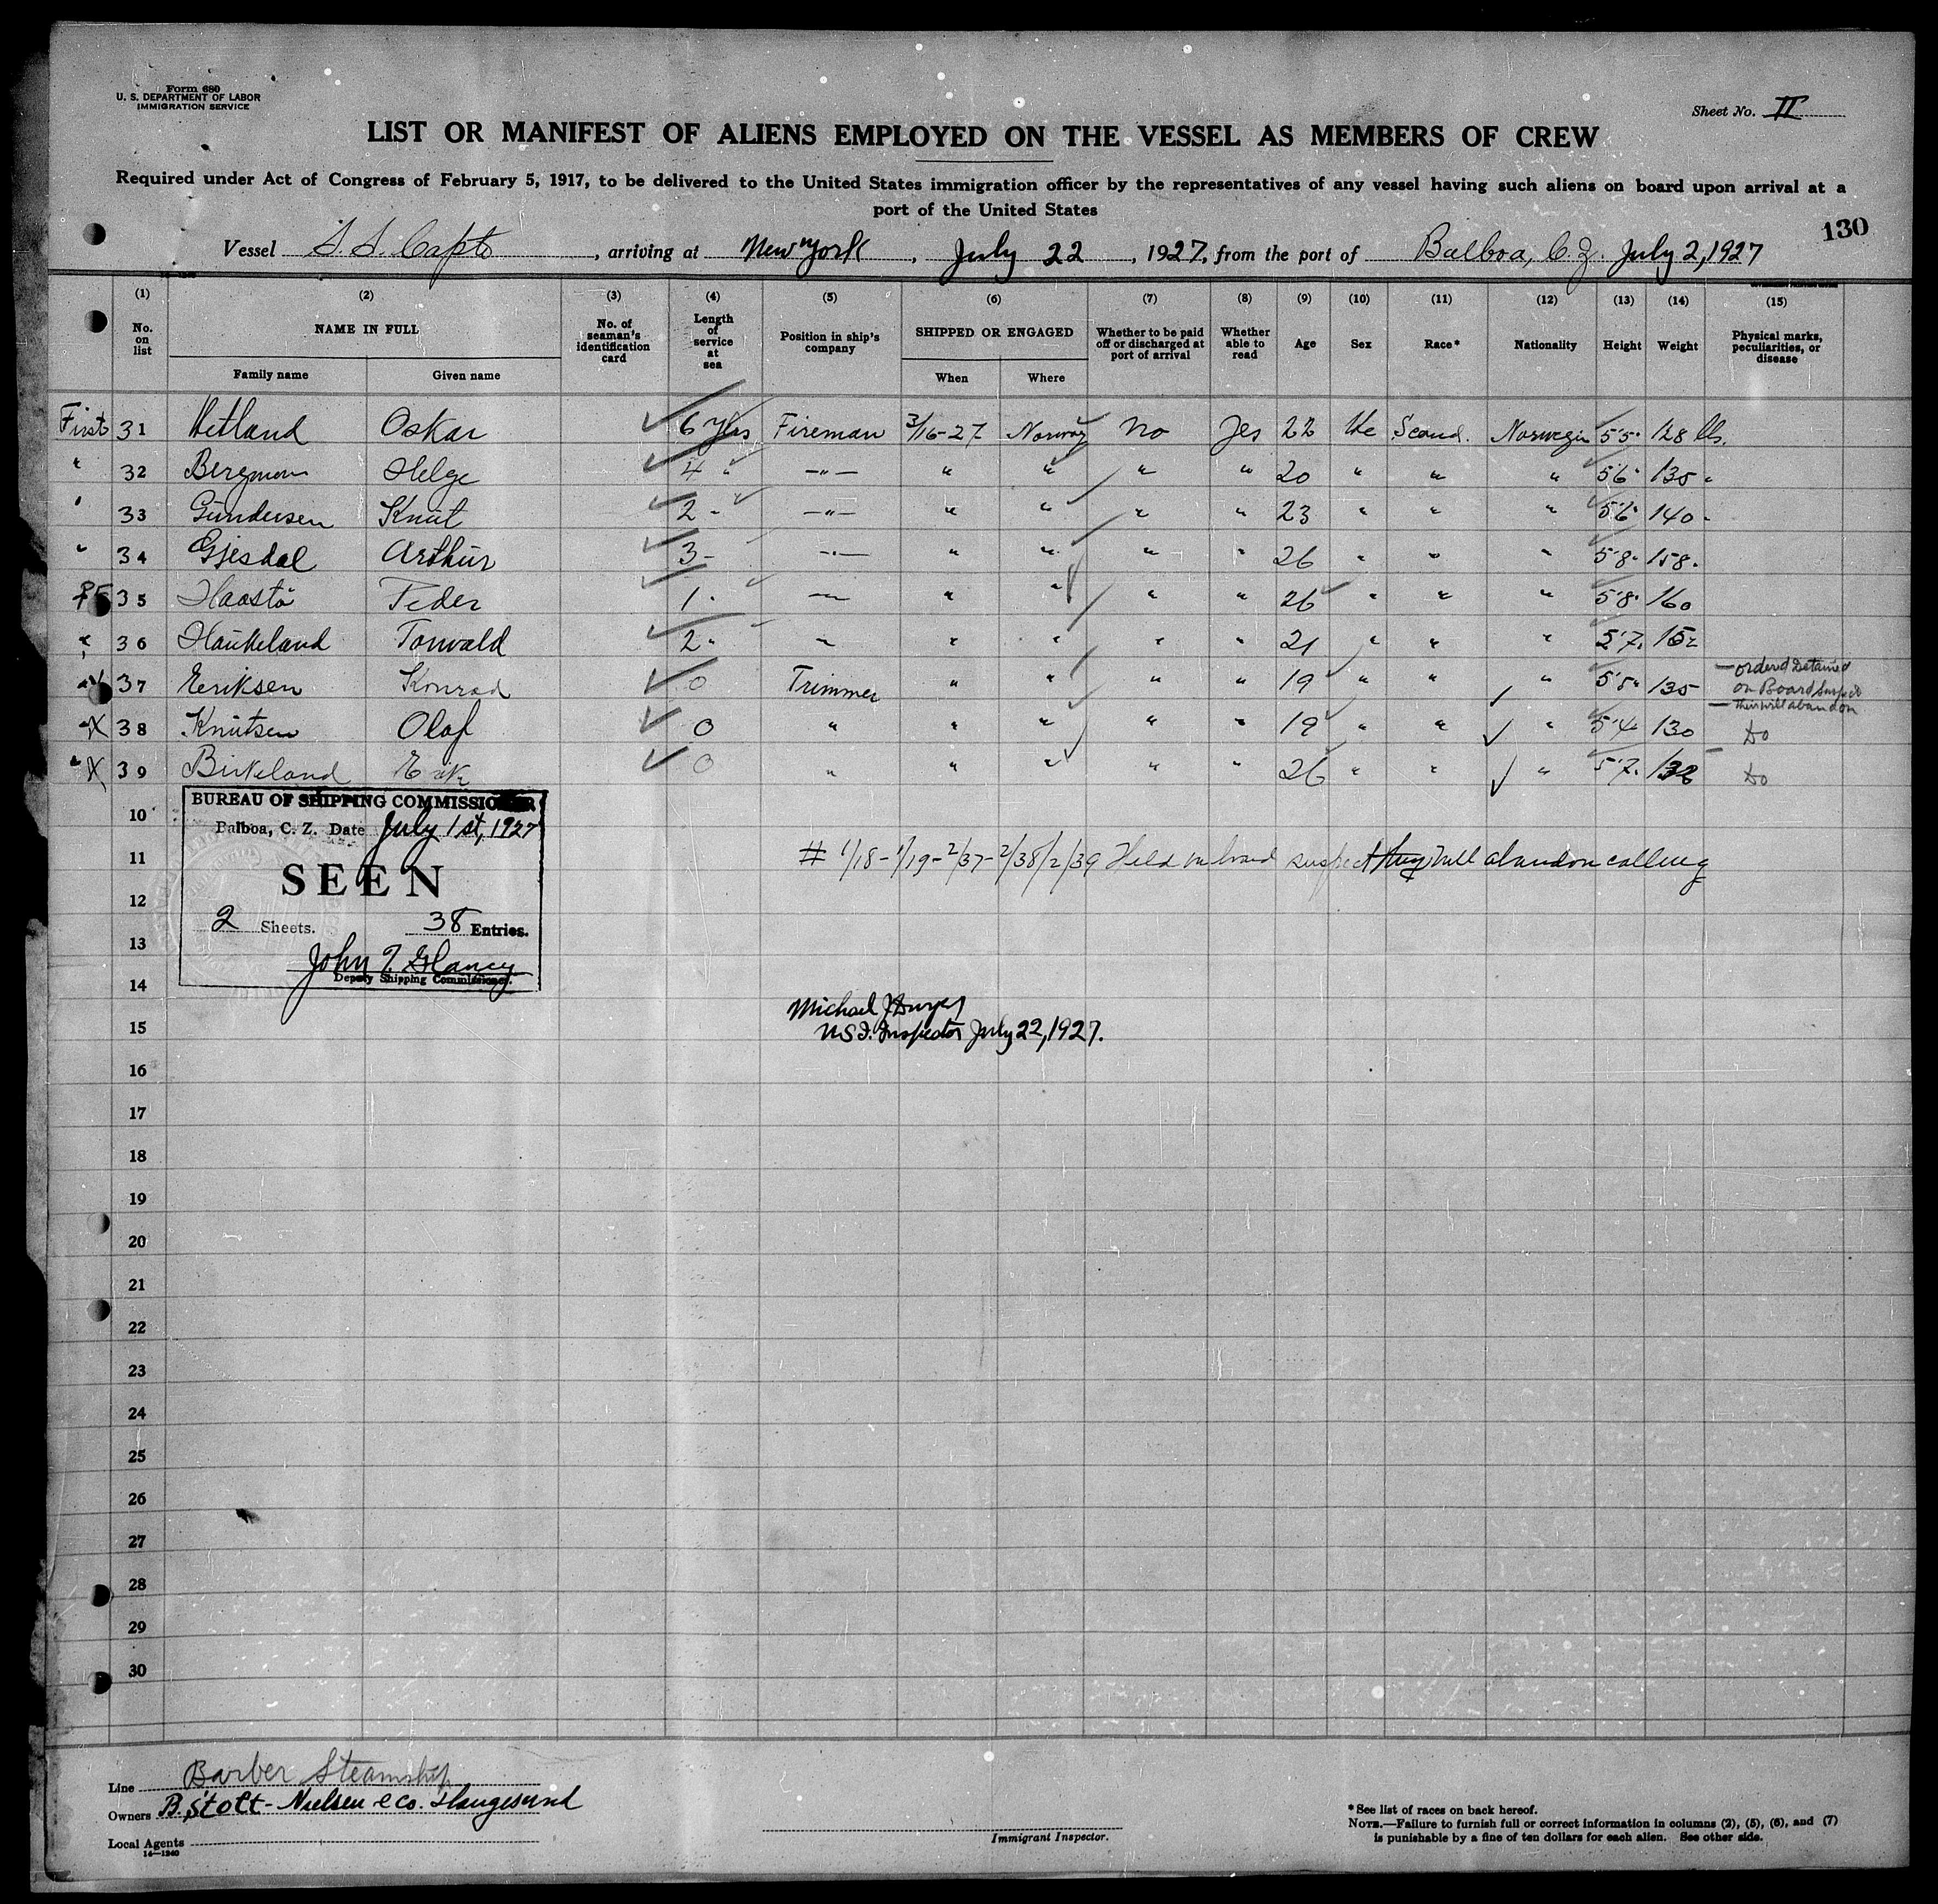 Form 680
U. S. DEPARTMENT OF LABOR
IMMIGRATION SERVICE
Sheet No. II
LIST OR MANIFEST OF ALIENS EMPLOYED ON THE VESSEL AS MEMBERS OF CREW
Required under Act of Congress of February 5, 1917, to be delivered to the United States immigration officer by the representatives of any vessel having such aliens on board upon arrival at a
port of the United States
130
Vessel S.S. Capto, arriving at New York, July 22, 1927, from the port of Balboa, C.Z. July 2, 1927
(1) (2) (3) (4) (5) (6) (7) (8) (9) (10) (11) (12) (13) (14) (15)
No. on list NAME IN FULL No. of seaman's identification card Length of service at sea Position in ship's company SHIPPED OR ENGAGED Whether to be paid off or discharged at port of arrival Whether able to read Age Sex Race* Nationality Height Weight Physical marks, peculiarities, or disease
Family name Given name When Where
First 31 Hetland Oskar 6 yrs Fireman 3/16-27 Norway No Yes 22 Scand. 5'5" 128 lbs.
" 32 Helge 4 " —"— " " " " 20 " " " 5'6" 135 "
" 33 Gundersen Knut 2 " —"— " " " " 23 " " " 5'6" 140 "
" 34 Gjesdal Arthur 3 — —"— " " " " 26 " " " 5'8" 158 "
35 Peder 1 " —"— " " " " 26 " " " 5'8" 160
" 36 Haukeland Torwald 2 " " " " " " 21 " " " 5'7" 152
" X 37 Eriksen Konrad 0 Trimmer " " " " 19 " " " 5'8" 135 — ordered Detained
on Board
— they will abandon
" X 38 Knutsen Olaf 0 " " " " " 19 " " " 5'4" 130 Do
" X 39 Birkeland 0 " " " " " 26 " " " 5'7" Do
BUREAU OF SHIPPING COMMISSIONER
Balboa, C. Z. Date July 1st, 1927
SEEN
2 Sheets. 38 Entries.
John J. Glancy
Deputy Shipping Commissioner.
10
11
# 1/18 - 1/19 - 2/37 - 2/38 / 2/39 Held on board suspect they will abandon calling
12
13
14
Michael J Dwyer
15
U S I. Inspector July 22, 1927.
16
17
18
19
20
21
22
23
24
25
26
27
28
29
30
Line Barber Steamship
Owners B. Stolt-Nielsen & Co. Haugesund
Local Agents
14—1240
Immigrant Inspector.
* See list of races on back hereof.
NOTE.—Failure to furnish full or correct information in columns (2), (5), (6), and (7)
is punishable by a fine of ten dollars for each alien. See other side.